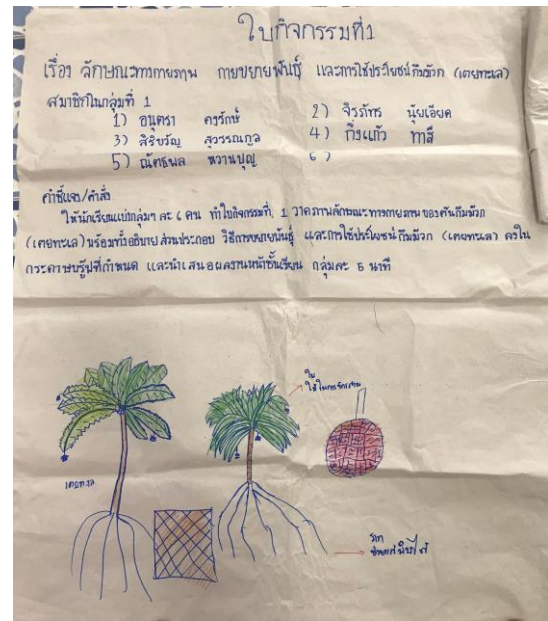 ใบกิจกรรมที่1
เรื่อง ลักษณะทางกายภาพ การขยายพันธุ์ และการใช้ประโยชน์กีมม๊วก (เตยทะเล)
สมาชิกในกลุ่มที่ 1
1) อนุตรา คงรักษ์ 2) จิรภัทร นุ้ยเอียด
3) สิริขวัญ สุวรรณกูล 4) กิ่งแก้ว
5) ณัตธพล หวานบุญ 6)
คำชี้แจง/คำสั่ง
ให้นักเรียนแบ่งกลุ่มๆ ละ 6 คน ทำใบกิจกรรมที่ 1 วาดภาพลักษณะทางกายภาพของต้นกีมม๊วก
(เตยทะเล) พร้อมทั้งอธิบายส่วนประกอบ วิธีการขยายพันธุ์ และการใช้ประโยชน์กีมม๊วก (เตยทะเล) ลงใน
กระดาษบรู๊ฟที่กำหนด และนำเสนอผลงานหน้าชั้นเรียน กลุ่มละ 5 นาที
ใบ
ใช้ในการจักสาน
เตยทะเล
ราก